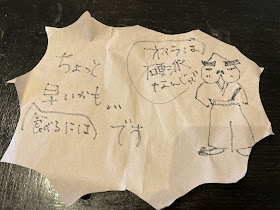 ちょっと
早いかも...
(食べるには)です
オイラは
硬派
なんじゃ